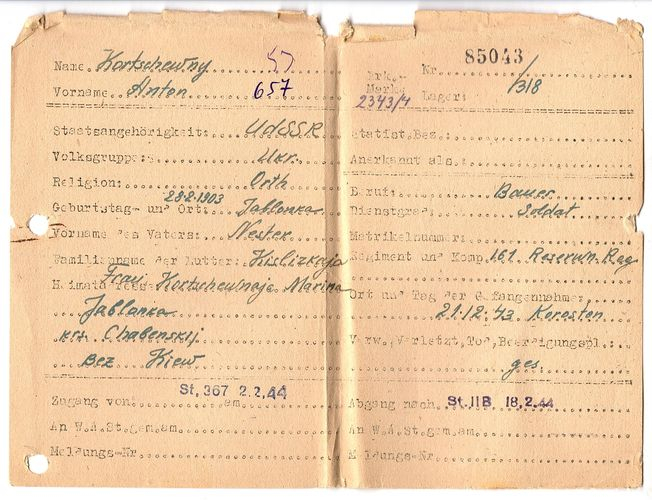 Name Kortschewny 57
Vorname Anton 657
Staatsangehörigkeit: UdSSR
Volksgruppe: Ukr.
Religion: Orth
28.2.1903
Geburtstag- und Ort: Jablonka
Vorname des Vaters: Nester
Familienname der Mutter: Kislizkaja
Frau Kortschewnaja Marina
Jablonka
krs. Chabenskij
Bez Kiew
St. 367 2.2.44
Zugang von am
An W.A.St.gem.am.
Meldungs-Nr.
85043
Erk.- Nr.
Marke /318
2343/4 Lager:
Statist.Bez.:
Anerkannt als.:
Beruf: Bauer
Dienstgrad: Soldat
Matrikelnummer:
Regiment und Komp. 161. Reserwn. Reg
Ort und Tag der Gefangennahme:
21.12.43 Korosten
Verw., Verletzt, Tod, Beerdigungspl.:
ges
Abgang nach St. II B 18.2.44
An W.A.St.gem.am.
Meldungs-Nr.